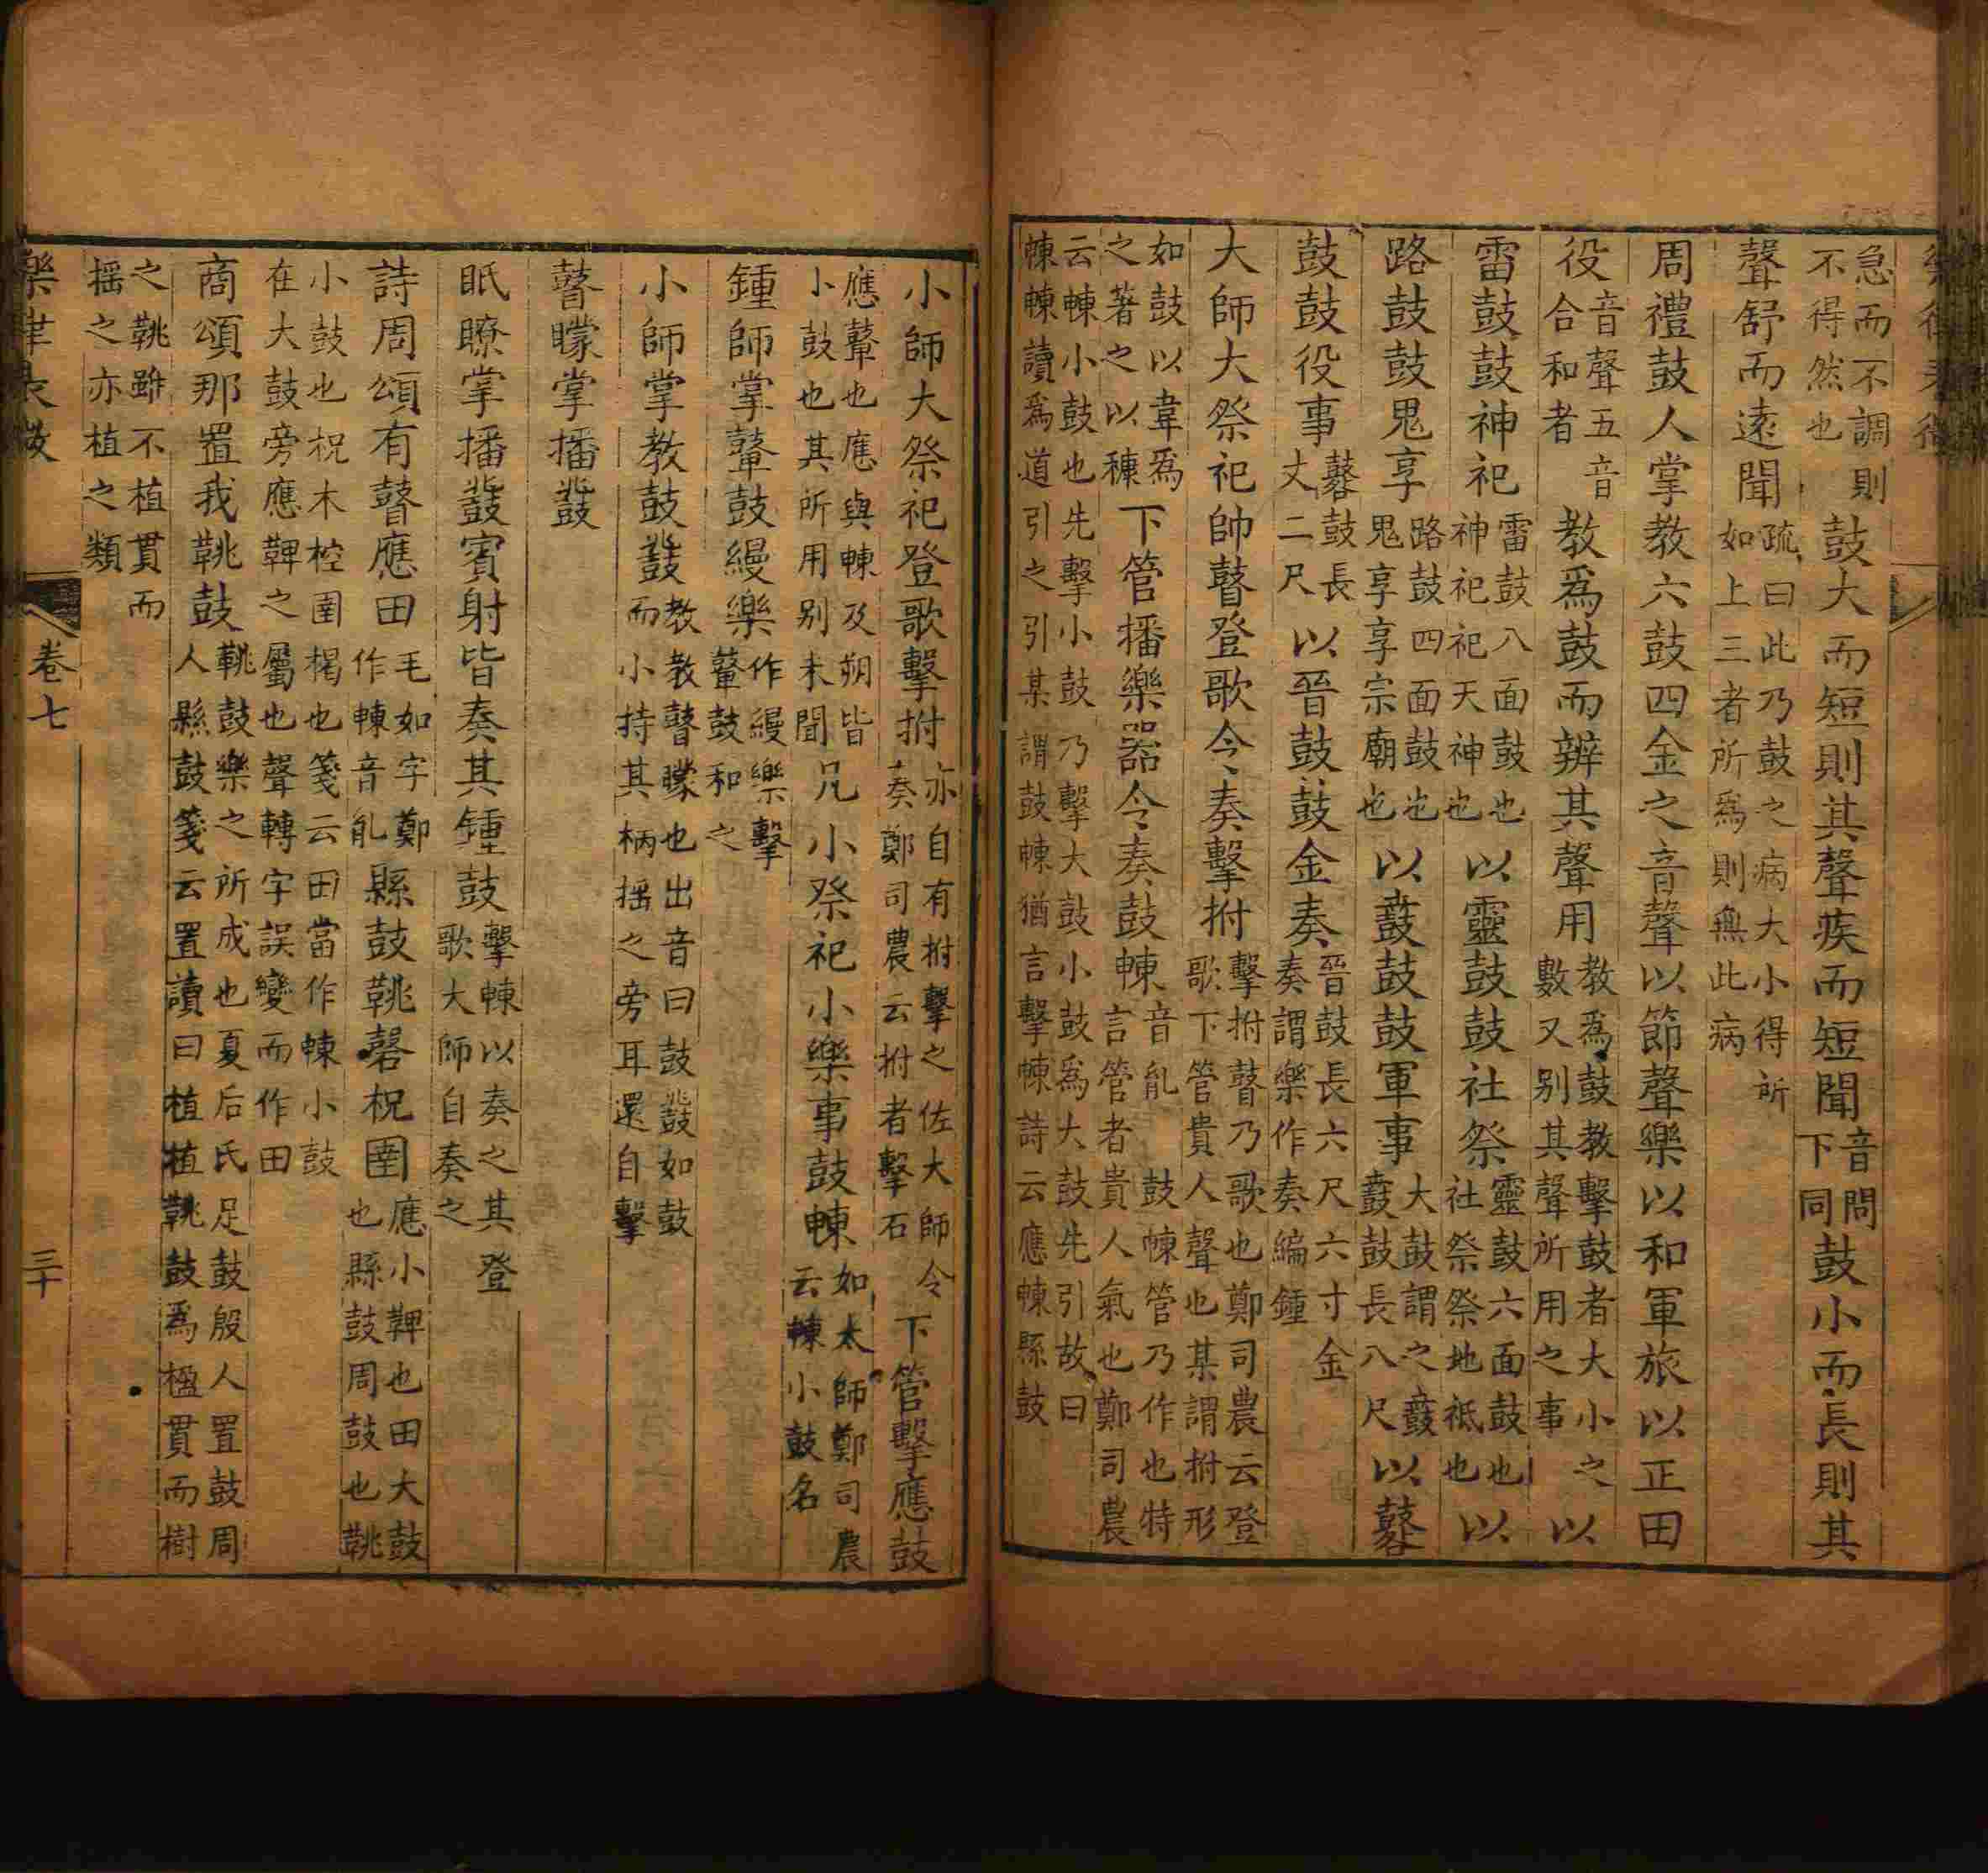 急而不調則不得然也鼓大而短則其聲疾而短聞音問下同鼓小而長則其
聲舒而遠聞疏曰此乃鼓之病大小得所如上三者所爲則無此病
周禮鼓人掌教六鼓四金之音聲以節聲樂以和軍旅以正田
役音聲五音合和者教爲鼓而辨其聲用教爲鼓教擊鼓者大小之數又別其聲所用之事以
雷鼓鼓神祀雷鼓八面鼓也神祀祀天神也以靈鼓鼓社祭靈鼓六面鼓也社祭祭地祗也以
路鼓鼓鬼享路鼓四面鼓也鬼享享宗廟也以鼖鼓鼓軍事大鼓謂之鼖鼖鼓長八尺以鼛
鼓鼓役事鼛鼓長丈二尺以晉鼓鼓金奏晉鼓長六尺六寸金奏謂樂作奏編鍾
大師大祭祀帥瞽登歌令奏擊拊擊拊瞽乃歌也鄭司農云登歌下管貴人聲也某謂拊形
如鼓以韋爲之著之以穅下管播樂器令奏鼓朄音胤鼓朄管乃作也特言管者貴人氣也鄭司農
云朄小鼓也先擊小鼓乃擊大鼓小鼓爲大鼓先引故曰朄朄讀爲道引之引某謂鼓朄猶言擊朄詩云應朄縣鼓
小師大祭祀登歌擊拊亦自有拊擊之佐大師令奏鄭司農云拊者擊石下管擊應鼓
應鼙也應與朄及朔皆小鼓也其所用別未聞凡小祭祀小樂事鼓朄如太師鄭司農云朄小鼓名
鍾師掌鼙鼓縵樂作縵樂擊鼙鼓和之
小師掌教鼓鼗教教瞽矇也出音曰鼓鼗如鼓而小持其柄搖之旁耳還自擊
瞽矇掌播鼗
眂瞭掌播鼗賓射皆奏其鍾鼓擊朄以奏之其登歌大師自奏之
詩周頌有瞽應田毛如字鄭作朄音胤縣鼓鞉磬柷圉應小鞞也田大鼓也縣鼓周鼓也鞉
小鼓也柷木椌圉楬也箋云田當作朄小鼓在大鼓旁應鞞之屬也聲轉字誤變而作田
商頌那置我鞉鼓鞉鼓樂之所成也夏后氏足鼓殷人置鼓周人縣鼓箋云置讀曰植植鞉鼓爲楹貫而樹
之鞉雖不植貫而搖之亦植之類
卷七
三十